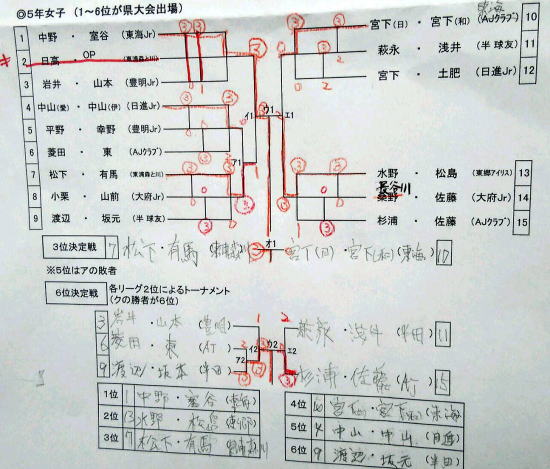 ◎5年女子 (1～6位が県大会出場)
1 中野 ・ 室谷 (東海Jr)
2 日高 ・ OP (東浦森と川)
3 岩井 ・ 山本 (豊明Jr)
4 中山(愛) ・ 中山(伊) (日進Jr)
5 平野 ・ 幸野 (豊明Jr)
6 菱田 ・ 東 (AJクラブ)
7 松下 ・ 有馬 (東浦森と川)
8 小栗 ・ 山前 (大府Jr)
9 渡辺 ・ 坂元 (半球友)
東海
宮下(日) ・ 宮下(和) (AJクラブ) 10
萩永 ・ 浅井 (半球友) 11
宮下 ・ 土肥 (日進Jr) 12
水野 ・ 松島 (東郷アイリス) 13
長谷川
桑野 ・ 佐藤 (大府Jr) 14
杉浦 ・ 佐藤 (AJクラブ) 15
イ1 ウ1 エ1
ア1
オ1
3位決定戦 7 松下・有馬 宮下(日)・宮下(和)(東海) 10
※5位はアの敗者
6位決定戦 各リーグ2位によるトーナメント
(クの勝者が6位)
3 岩井・山本(豊明)
6 菱田・東(AJ)
9 渡辺・坂本(半田)
萩永・浅井(半田) 11
杉浦・佐藤(AJ) 15
イ2 カ2 エ2
ア2
1位 1 中野・室谷(東海)
2位 13 水野・松島(東郷)
3位 7 松下・有馬
4位 10 宮下(日)・宮下(和)(東海)
5位 4 中山・中山(日進)
6位 9 渡辺・坂元(半田)